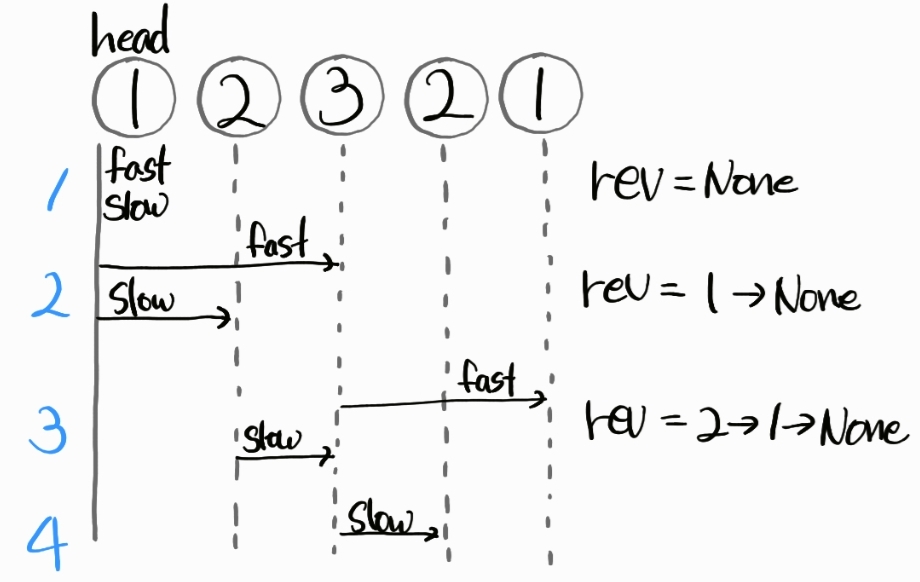 head
1 2 3 2 1
1 fast
slow
rev = None
fast
2 slow
rev = 1 → None
fast
3 slow
rev = 2 → 1 → None
4 slow